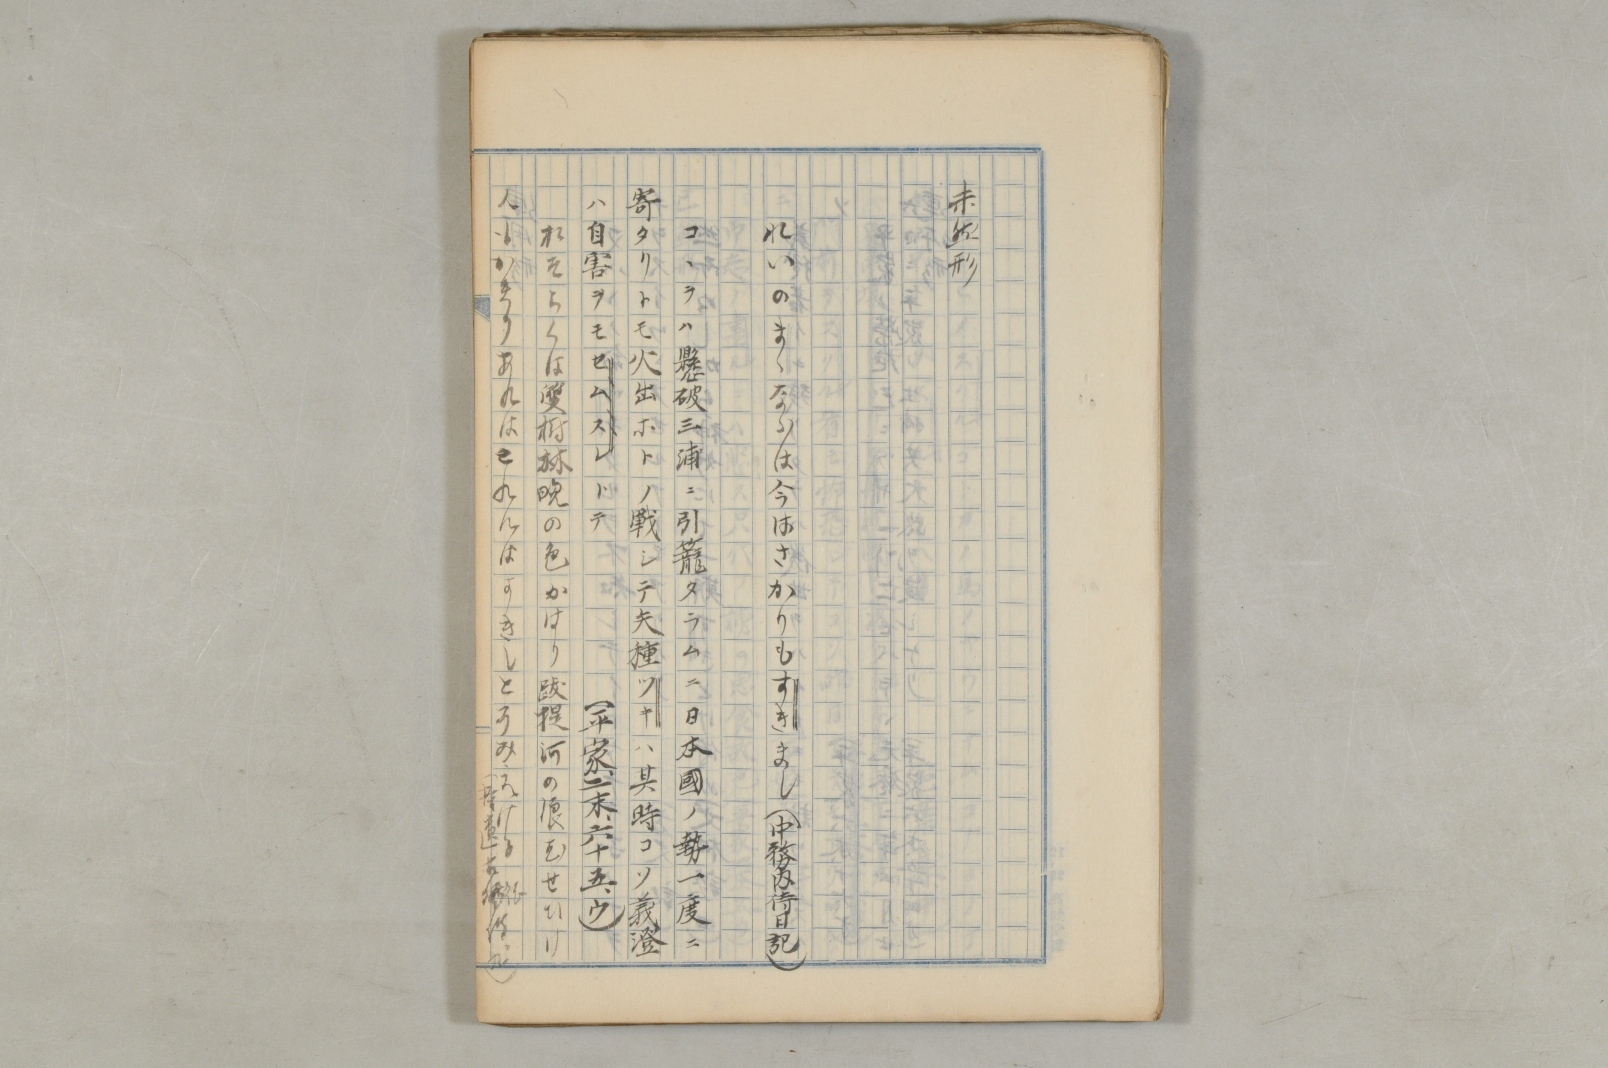 未然形
れいのまゝならは今はさかりもすきまし(中務内侍日記)
コヽヲハ懸破三浦ニ引籠タラムニ日本國ノ勢一度ニ
寄タリトモ火出ホトノ戰シテ矢種ツキハ其時コソ義澄
ハ自害ヲモセムスレトテ
(平家、二末、六十五、ウ)
おそらくは雙樹林晩の色かはり跋提河の浪むせひけ
人もかきりあれは